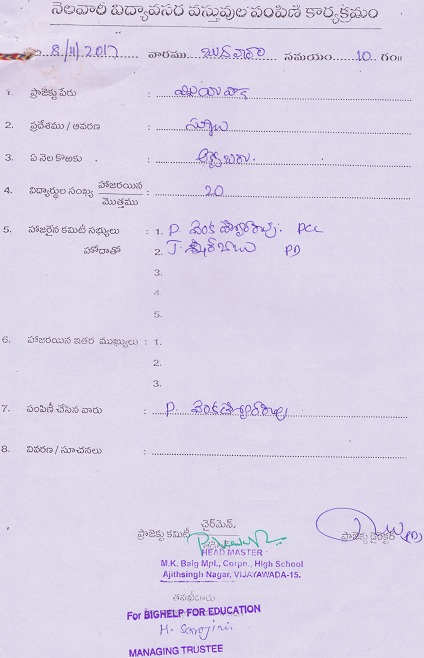 నెలవారి విద్యావసర వస్తువుల పంపిణీ కార్యక్రమం
ది 8/11/2017 వారము బుధవారం సమయం 10 గం॥
1. ప్రాజెక్టు పేరు :
2. ప్రదేశము / ఆవరణ : స్కూలు
3. ఏ నెల కొఱకు : అక్టోబరు.
4. విద్యార్థుల సంఖ్య హాజరయిన / మొత్తము : 20
5. హాజరైన కమిటీ సభ్యులు : 1. P. వెంకటేశ్వరరావు. PCC
హోదాతో 2. T. PD
3.
4.
5.
6. హాజరయిన ఇతర ముఖ్యులు : 1.
2.
3.
7. పంపిణీ చేసిన వారు : P. వెంకటేశ్వరరావు
8. వివరణ / సూచనలు :
ఛైర్‌మెన్.
ప్రాజెక్టు కమిటీ ప్రాజెక్టు డైరెక్టర్ PD
HEAD MASTER
M.K. Baig Mpl., Corpn., High School
Ajithsingh Nagar, VIJAYAWADA-15.
తనఖీదారు
For BIGHELP FOR EDUCATION
M. Sarojini
MANAGING TRUSTEE